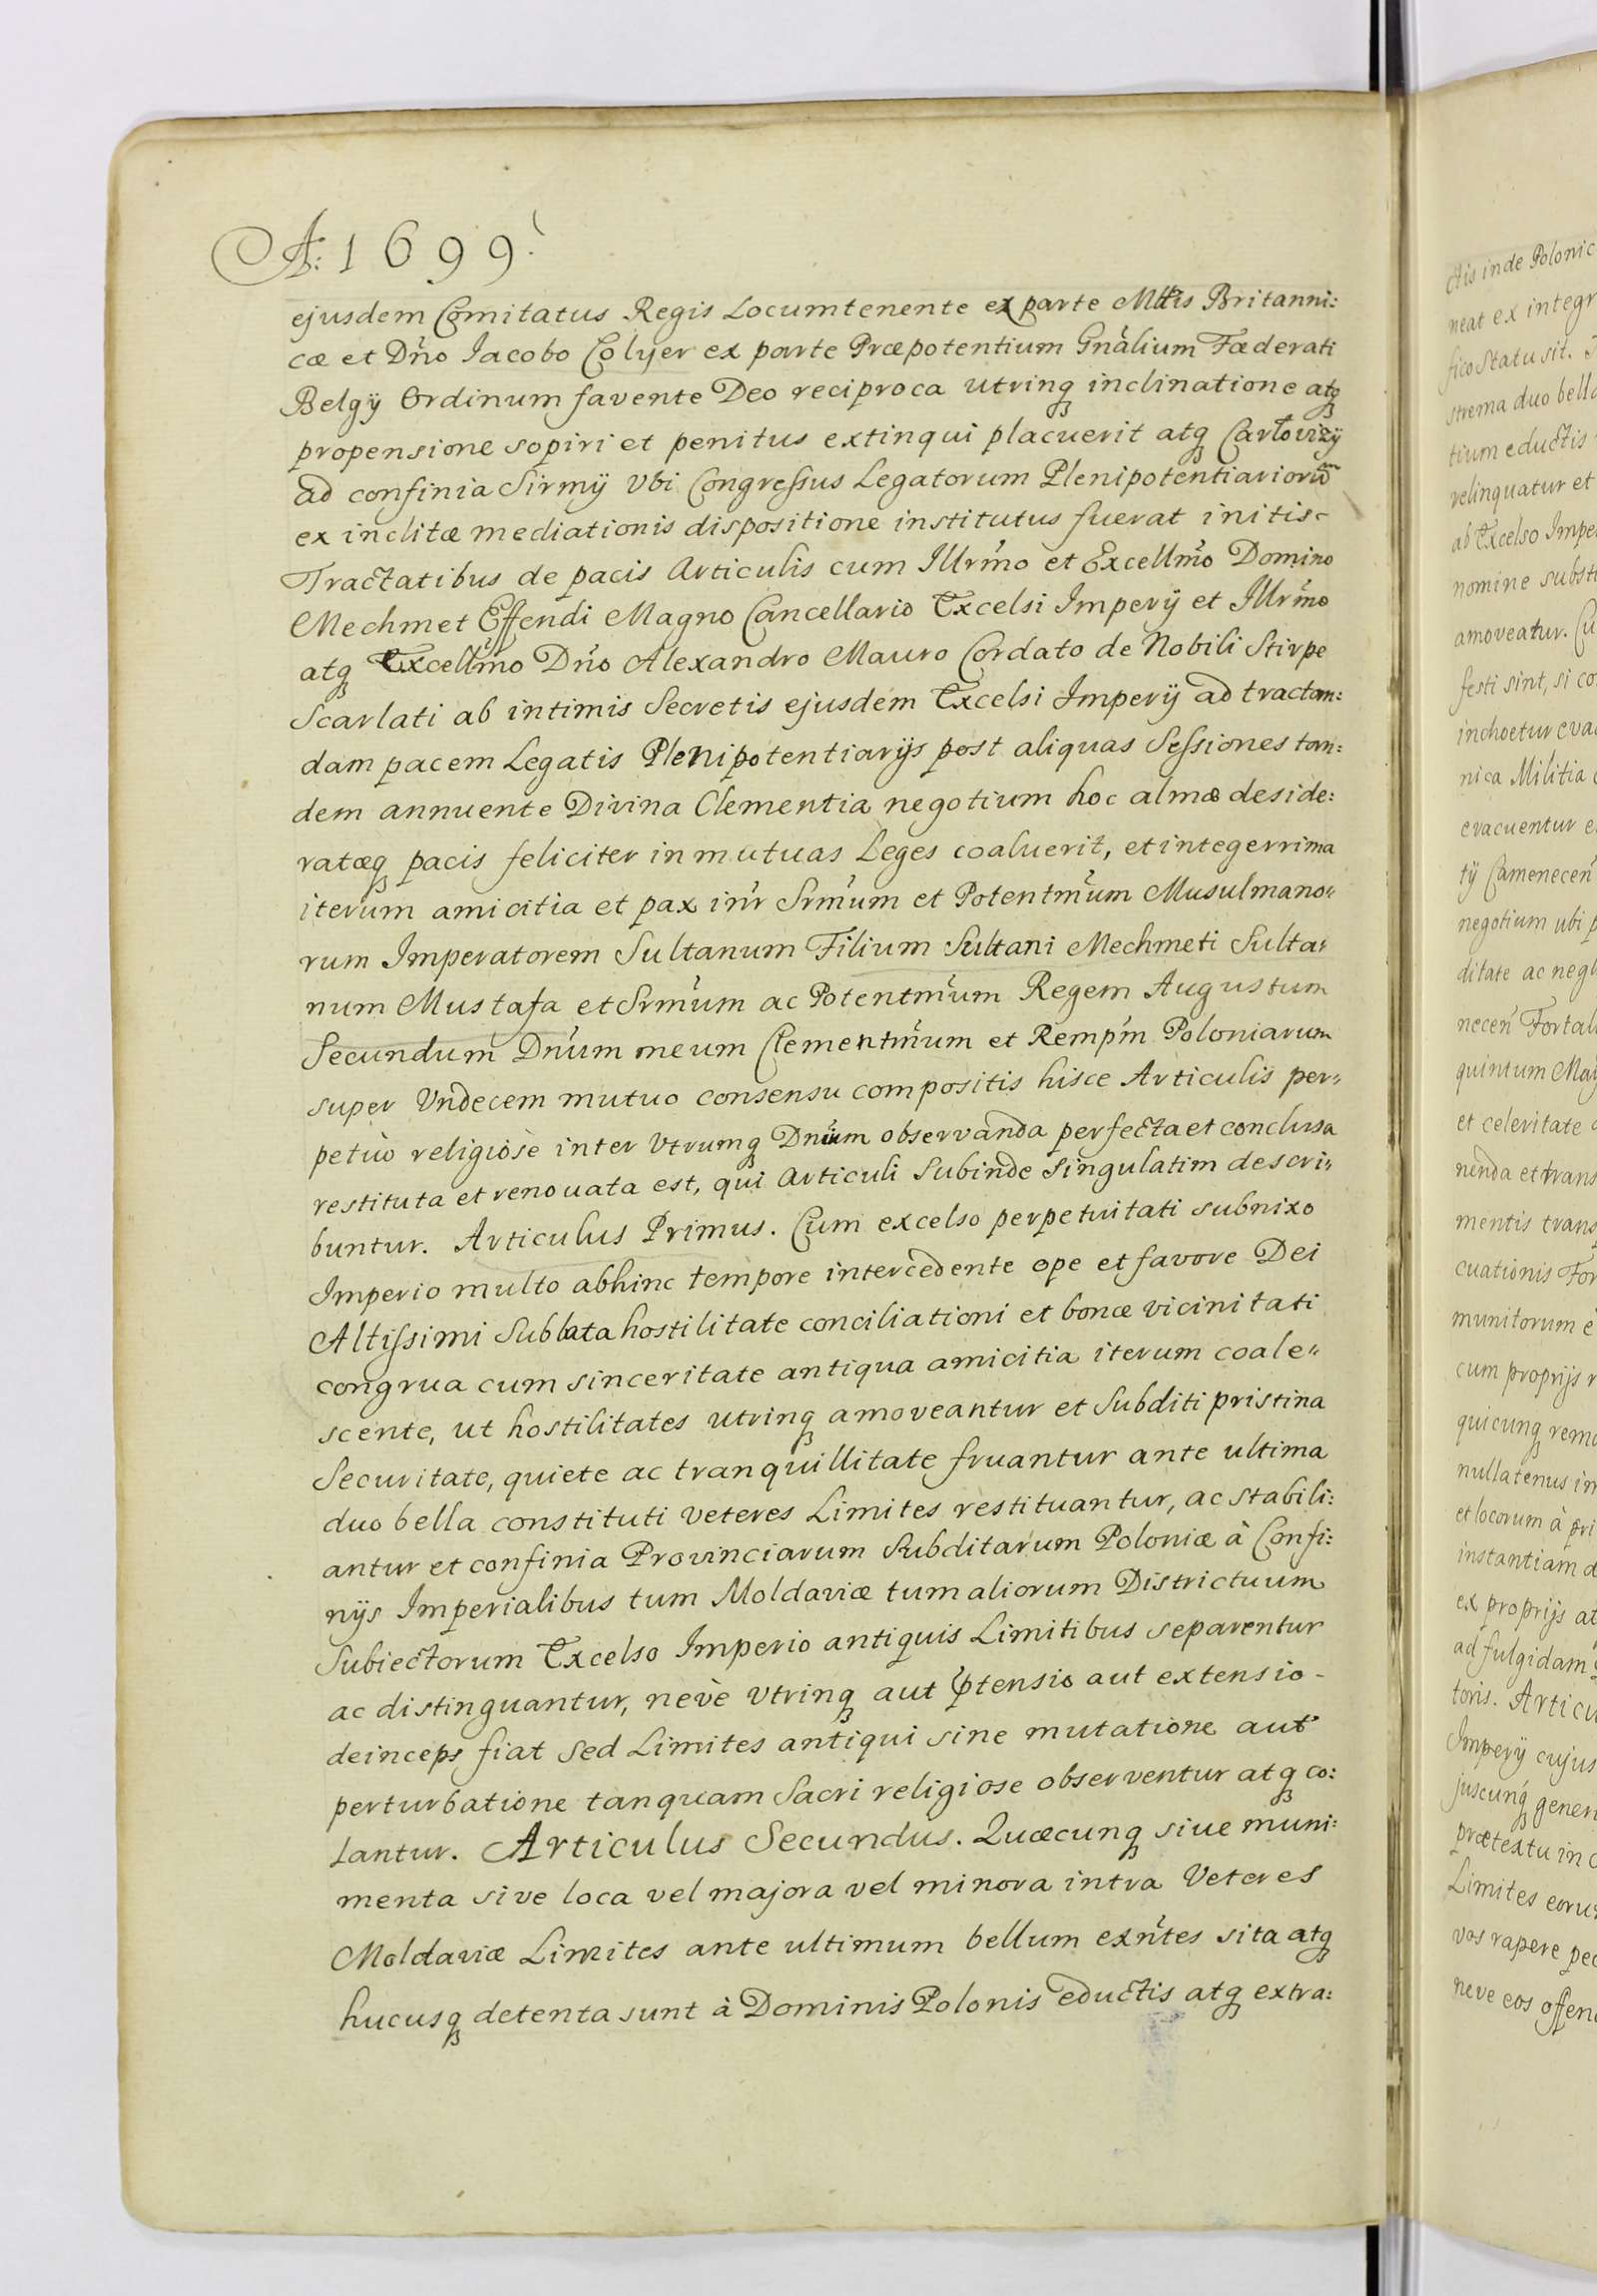 A: 1699.
ejusdem Comitatus Regis Locumtenente ex parte Mttis Britanni:
cæ et Dno Iacobo Colyer ex parte Præpotentium Gnalium Fæderati
Belgÿ Ordinum favente Deo reciproca utrinq inclinatione atq
propensione sopiri et penitus extinqui placuerit atq Carlovizÿ
ad confinia Sirmÿ Vbi Congressus Legatorum Plenipotentiarioru
ex inclitæ mediationis dispositione institutus fuerat initis
Tractatibus de pacis Articulis cum Illrmo et Excellmo Domino
Mechmet Effendi Magno Cancellario Excelsi Imperÿ et Illrmo
atq Excellmo Dno Alexandro Mauro Cordato de Nobili Stirpe
Scarlati ab intimis Secretis ejusdem Excelsi Imperÿ ad tractan:
dam pacem Legatis Plenipotentiarÿs post aliquas Sessiones tan:
dem annuente Divina Clementia negotium hoc almæ deside:
ratæq pacis feliciter in mutuas Leges coaluerit, et integerrima
iterum amicitia et pax inr Srmum et Potentmum Musulmano"
rum Imperatorem Sultanum Filium Sultani Mechmeti Sulta"
num Mustafa et Srmum ac Potentmum Regem Augustum
Secundum Dnum meum Clementmum et Rempm Poloniarum
super Vndecem mutuo consensu compositis hisce Articulis per"
petuò religiosè inter Vtrumq Dnium observanda perfecta et conclusa
restituta et renouata est, qui Articuli Subinde Singulatim descri"
buntur. Articulus Primus. Cum excelso perpetuitati subnixo
Imperio multo abhinc tempore intercedente ope et favore Dei
Altissimi Sublata hostilitate conciliationi et bonæ vicinitati
congrua cum sinceritate antiqua amicitia iterum coale"
scente, ut hostilitates utrinq amoveantur et Subditi pristina
Securitate, quiete ac tranquillitate fruantur ante ultima
duo bella constituti Veteres Limites restituantur, ac stabili:
antur et confinia Provinciarum Subditarum Poloniæ à Confi:
nÿs Imperialibus tum Moldaviæ tum aliorum Districtuum
Subiectorum Excelso Imperio antiquis Limitibus separentur
ac distinguantur, nevè Vtrinq aut ptensio aut extensio-
deinceps fiat Sed Limites antiqui sine mutatione aut
perturbatione tanquam Sacri religiose observentur atq co:
lantur. Articulus Secundus. Quæcunq siue muni:
menta sive loca vel majora vel minora intra Veteres
Moldaviæ Limites ante ultimum bellum exntes sita atq
hucusq detenta sunt à Dominis Polonis eductis atq extra:
ctis inde Polonic
neat ex integr
fico Statu sit.
strema duo bella
tium eductis
relinquatur et
ab Excelso Impe
nomine subst
amoveatur. Cu
festi sint, si co
inchoetur eva
nica Militia
evacuentur e
tÿ Camenecen
negotium ubi p
ditate ac negl
necen Fortal
quintum Maÿ
et celeritate
nenda et trans
mentis trans
cuationis For
munitorum è
cum proprÿs r
quicunq remo
nullatenus in
et locorum à pri
instantiam d
ex proprÿs at
ad fulgidam
toris. Articu
Imperÿ cujus
juscunq gener
prætextu in
Limites eoru
vos rapere pec
neve eos offen